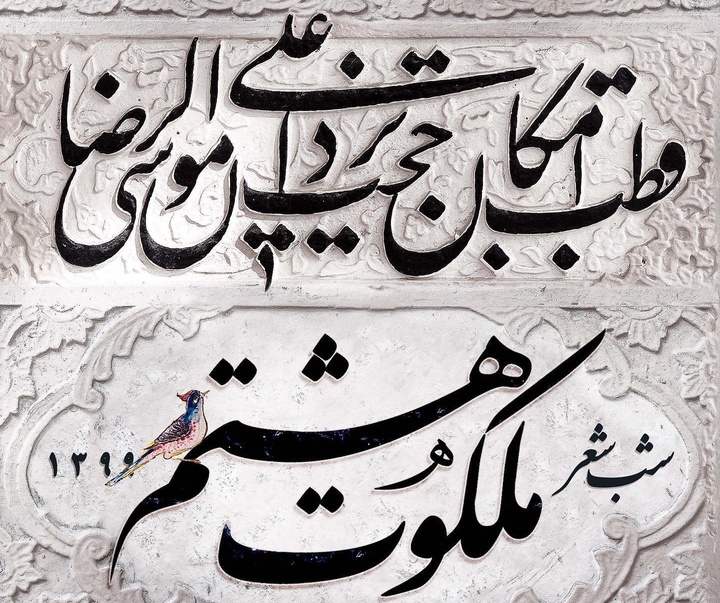 قطب امکان حجت یزدان علی بن موسی الرضا
شب شعر
ملکوت هشتم
۱۳۹۹